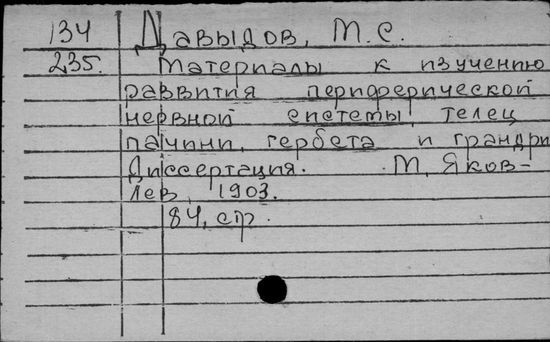 134 Давыдов, М.С.
235. Материалы к изучению
развития периферической
нервной системы, телец
пачини, гербета и грандри
Диссертация. М, Яков-
лев, 1903.
84, стр.